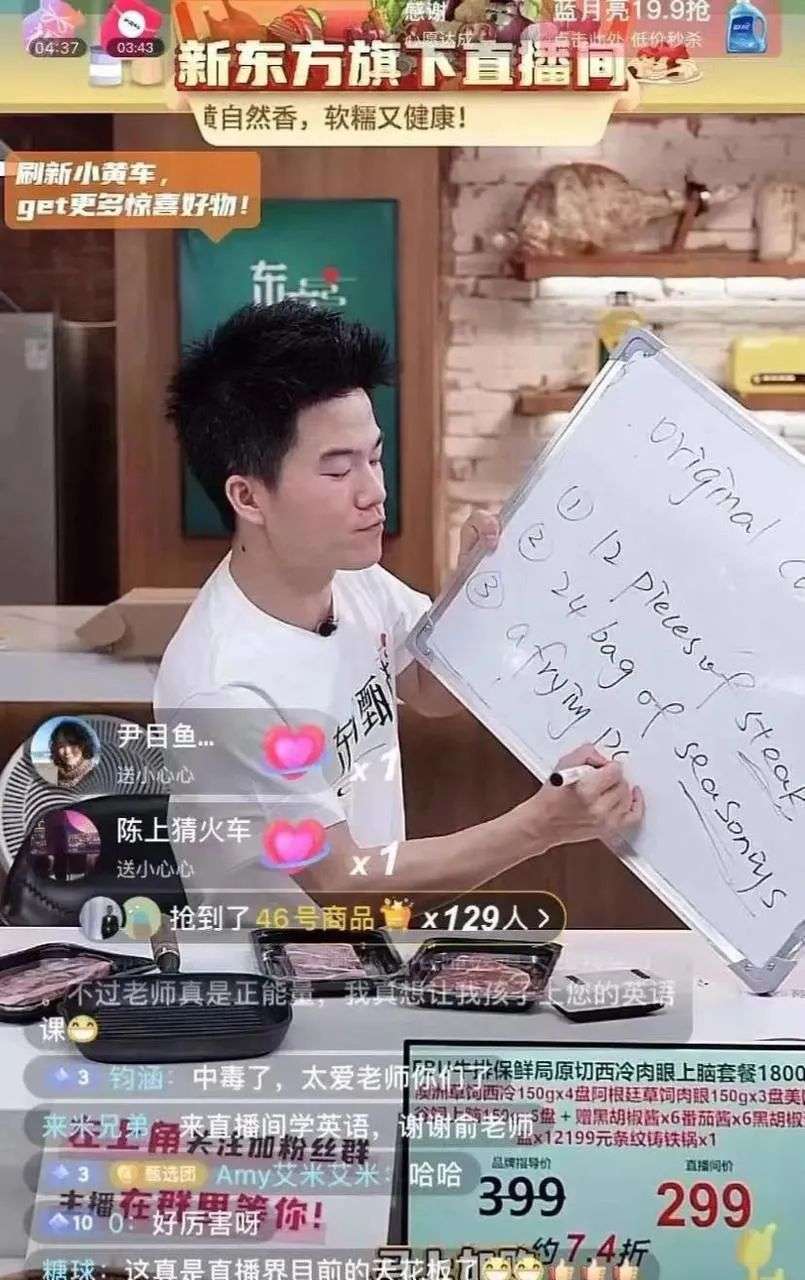 04:37
03:43
感谢
心愿达成
蓝月亮19.9抢
点击此处 低价秒杀
新东方旗下直播间
黄自然香，软糯又健康！
刷新小黄车，
get更多惊喜好物！
东
original
① 12 pieces of steak,
② 24 bag of seasonings
③ a frying
东
甄
尹目鱼...
送小心心
x 1
陈上猜火车
送小心心
x 1
抢到了 46号商品 x129人 >
。不过老师真是正能量，我真想让我孩子上您的英语
课😁
3 钧涵：中毒了，太爱老师你们了
来米兄弟：来直播间学英语，谢谢俞老师
左上角关注加粉丝群
3 甄选团 Amy艾米艾米：哈哈
主播在群里等你！
10 0：好厉害呀
糖球：这真是直播界目前的天花板了😁😁
牛排保鲜局原切西冷肉眼上脑套餐1800
澳洲草饲西冷150gx4盘阿根廷草饲肉眼150gx3盘美国
谷饲上脑150gx5盘 + 赠黑胡椒酱x6番茄酱x6黑胡椒
盐x12199元条纹铸铁锅x1
品牌指导价
399
直播间价
299
约7.4折